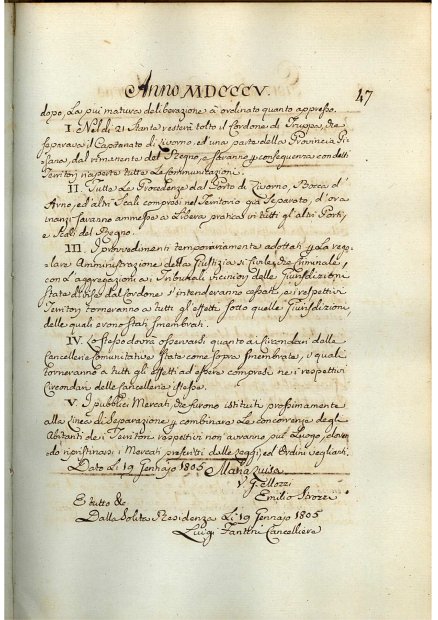 Anno MDCCCV.
47
dopo la più matura deliberazione à ordinato quanto appresso.
I. Nel dì 21 Stante resterà tolto il Cordone di Truppa, che
separava il Capitanato di Livorno, ed una parte della Provincia Pi-
sana, dal rimanente del Regno, e saranno conseguenza condetti
Territorj riaperte tutte le Comunicazioni.
II. Tutte le Procedenze dal Porto di Livorno, Bocca d'
Arno, ed altri Scali compresi nel Territorio già Separato, d'ora
inanzi saranno ammesse a Libera pratica in tutti gl'altri Porti,
e Scali del Regno.
III. I provvedimenti temporariamente adottati p. la rego-
lare Amministrazione della Giustizia sì Civile, che Criminale,
con l'aggregazione ai Tribunali viciniori delle Giurisdizioni
state divise dal Cordone s'intenderanno cessati, e i respettivi
Territorj torneranno a tutti gli effetti sotto quelle Giurisdizioni,
delle quali erono stati Smembrati.
IV. Lo stesso dovrà osservarsi quanto ai Circondari delle
Cancellerie Comunitative state come sopra Smembrate, i quali
torneranno a tutti gli effetti ad essere compresi nei respettivi
Circondari delle Cancellerie istesse.
V. I pubblici Mercati, che furono istituiti prossimamente
alla linea di Separazione p. combinare la concorrenza degli
Abitanti dei Territorj respettivi non avranno più Luogo, doven-
do ripristinarsi i Mercati prescritti dalle Leggi, ed Ordini veglianti.
Dato Li 19 Gennajo 1805
V.
Emilio Strozzi
E tutto &c
Dalla Solita Residenza Li 19 Gennajo 1805
Luigi Fantini Cancelliere